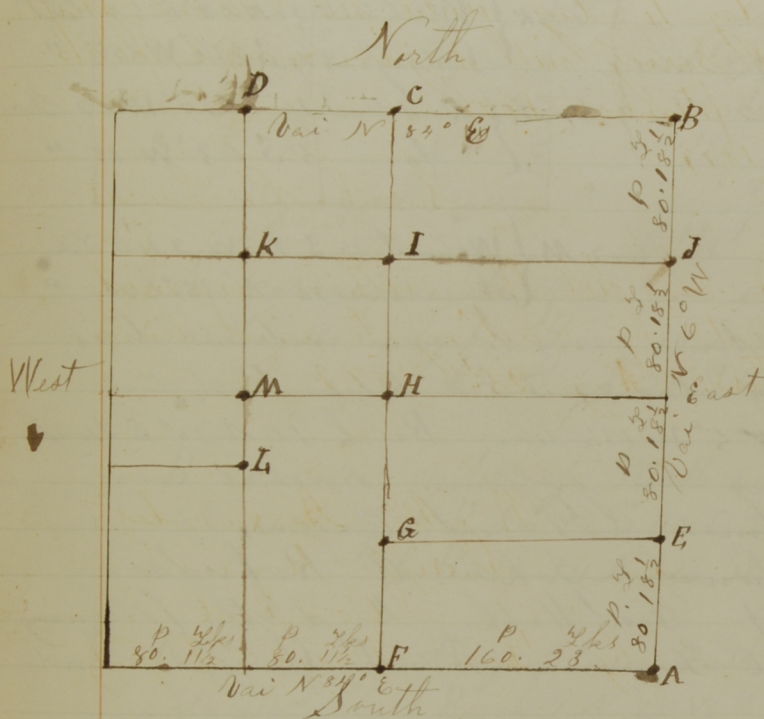 North
D C B
Vai N 84° E
P L
80.18½
K I J
P L
80.18½
N 6° W
West M H East
P L
80.18½
Vai
L
G E
P. L
80 18½
P Lks P Lks P Lks
80. 11½ 80. 11½ 160. 23
F A
Vai N 84° E
South